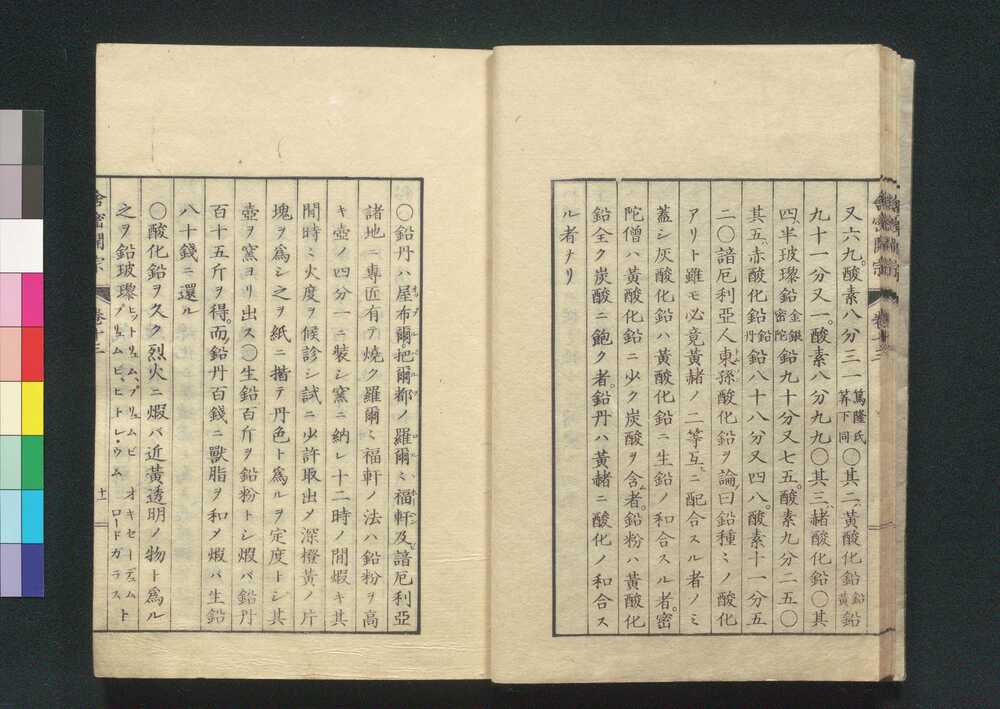 又六九。酸素八分三一 篤隆氏算下同 〇其二、黄酸化鉛 鉛黄 鉛
九十一分又一。酸素八分九九〇其三、赭酸化鉛〇其
四、半玻瓈鉛 金銀密陀 鉛九十分又七五。酸素九分二五〇
其五、赤酸化鉛 鉛丹 鉛八十八分又四八。酸素十一分五
二〇諳厄利亞人東孫酸化鉛ヲ論ノ曰鉛種ミノ酸化
アリト雖モ必竟黄赭ノ二等互ニ配合スル者ノミ
蓋シ灰酸化鉛ハ黄酸化鉛ニ生鉛ノ和合スル者。密
陀僧ハ黄酸化鉛ニ少ク炭酸ヲ含ム者。鉛粉ハ黄酸化
鉛全ク炭酸ニ飽ク者。鉛丹ハ黄赭ニ酸化ノ和合ス
ル者ナリ
〇鉛丹ハ屋布爾。把爾都ノ羅爾ミ福軒及諳厄利亞
諸地ニ専匠有テ焼ク羅爾ミ福軒ノ法ハ鉛粉ヲ高
キ壺ノ四分一ニ装シ窯ニ納レ十二時ノ間煆キ其
間時ミ火度ヲ候診シ試ニ少許取出メ深橙黄ノ片
塊ヲ為シ之ヲ紙ニ揩テ丹色ト為ルヲ定度トシ其
壺ヲ窯ヨリ出ス〇生鉛百斤ヲ鉛粉トシ煆バ鉛丹
百十五斤ヲ得。而ノ鉛丹百錢ニ獣脂ヲ和メ煆バ生鉛
八十錢ニ還ル
〇酸化鉛ヲ久ク烈火ニ煆バ近黄透明ノ物ト為ル
之ヲ鉛玻瓈 ヒトリュム、プリュムビ プリュムビ、ヒトレ・ウム オキセーデュムト ロードガラスト
舎密開宗 巻十三 十一